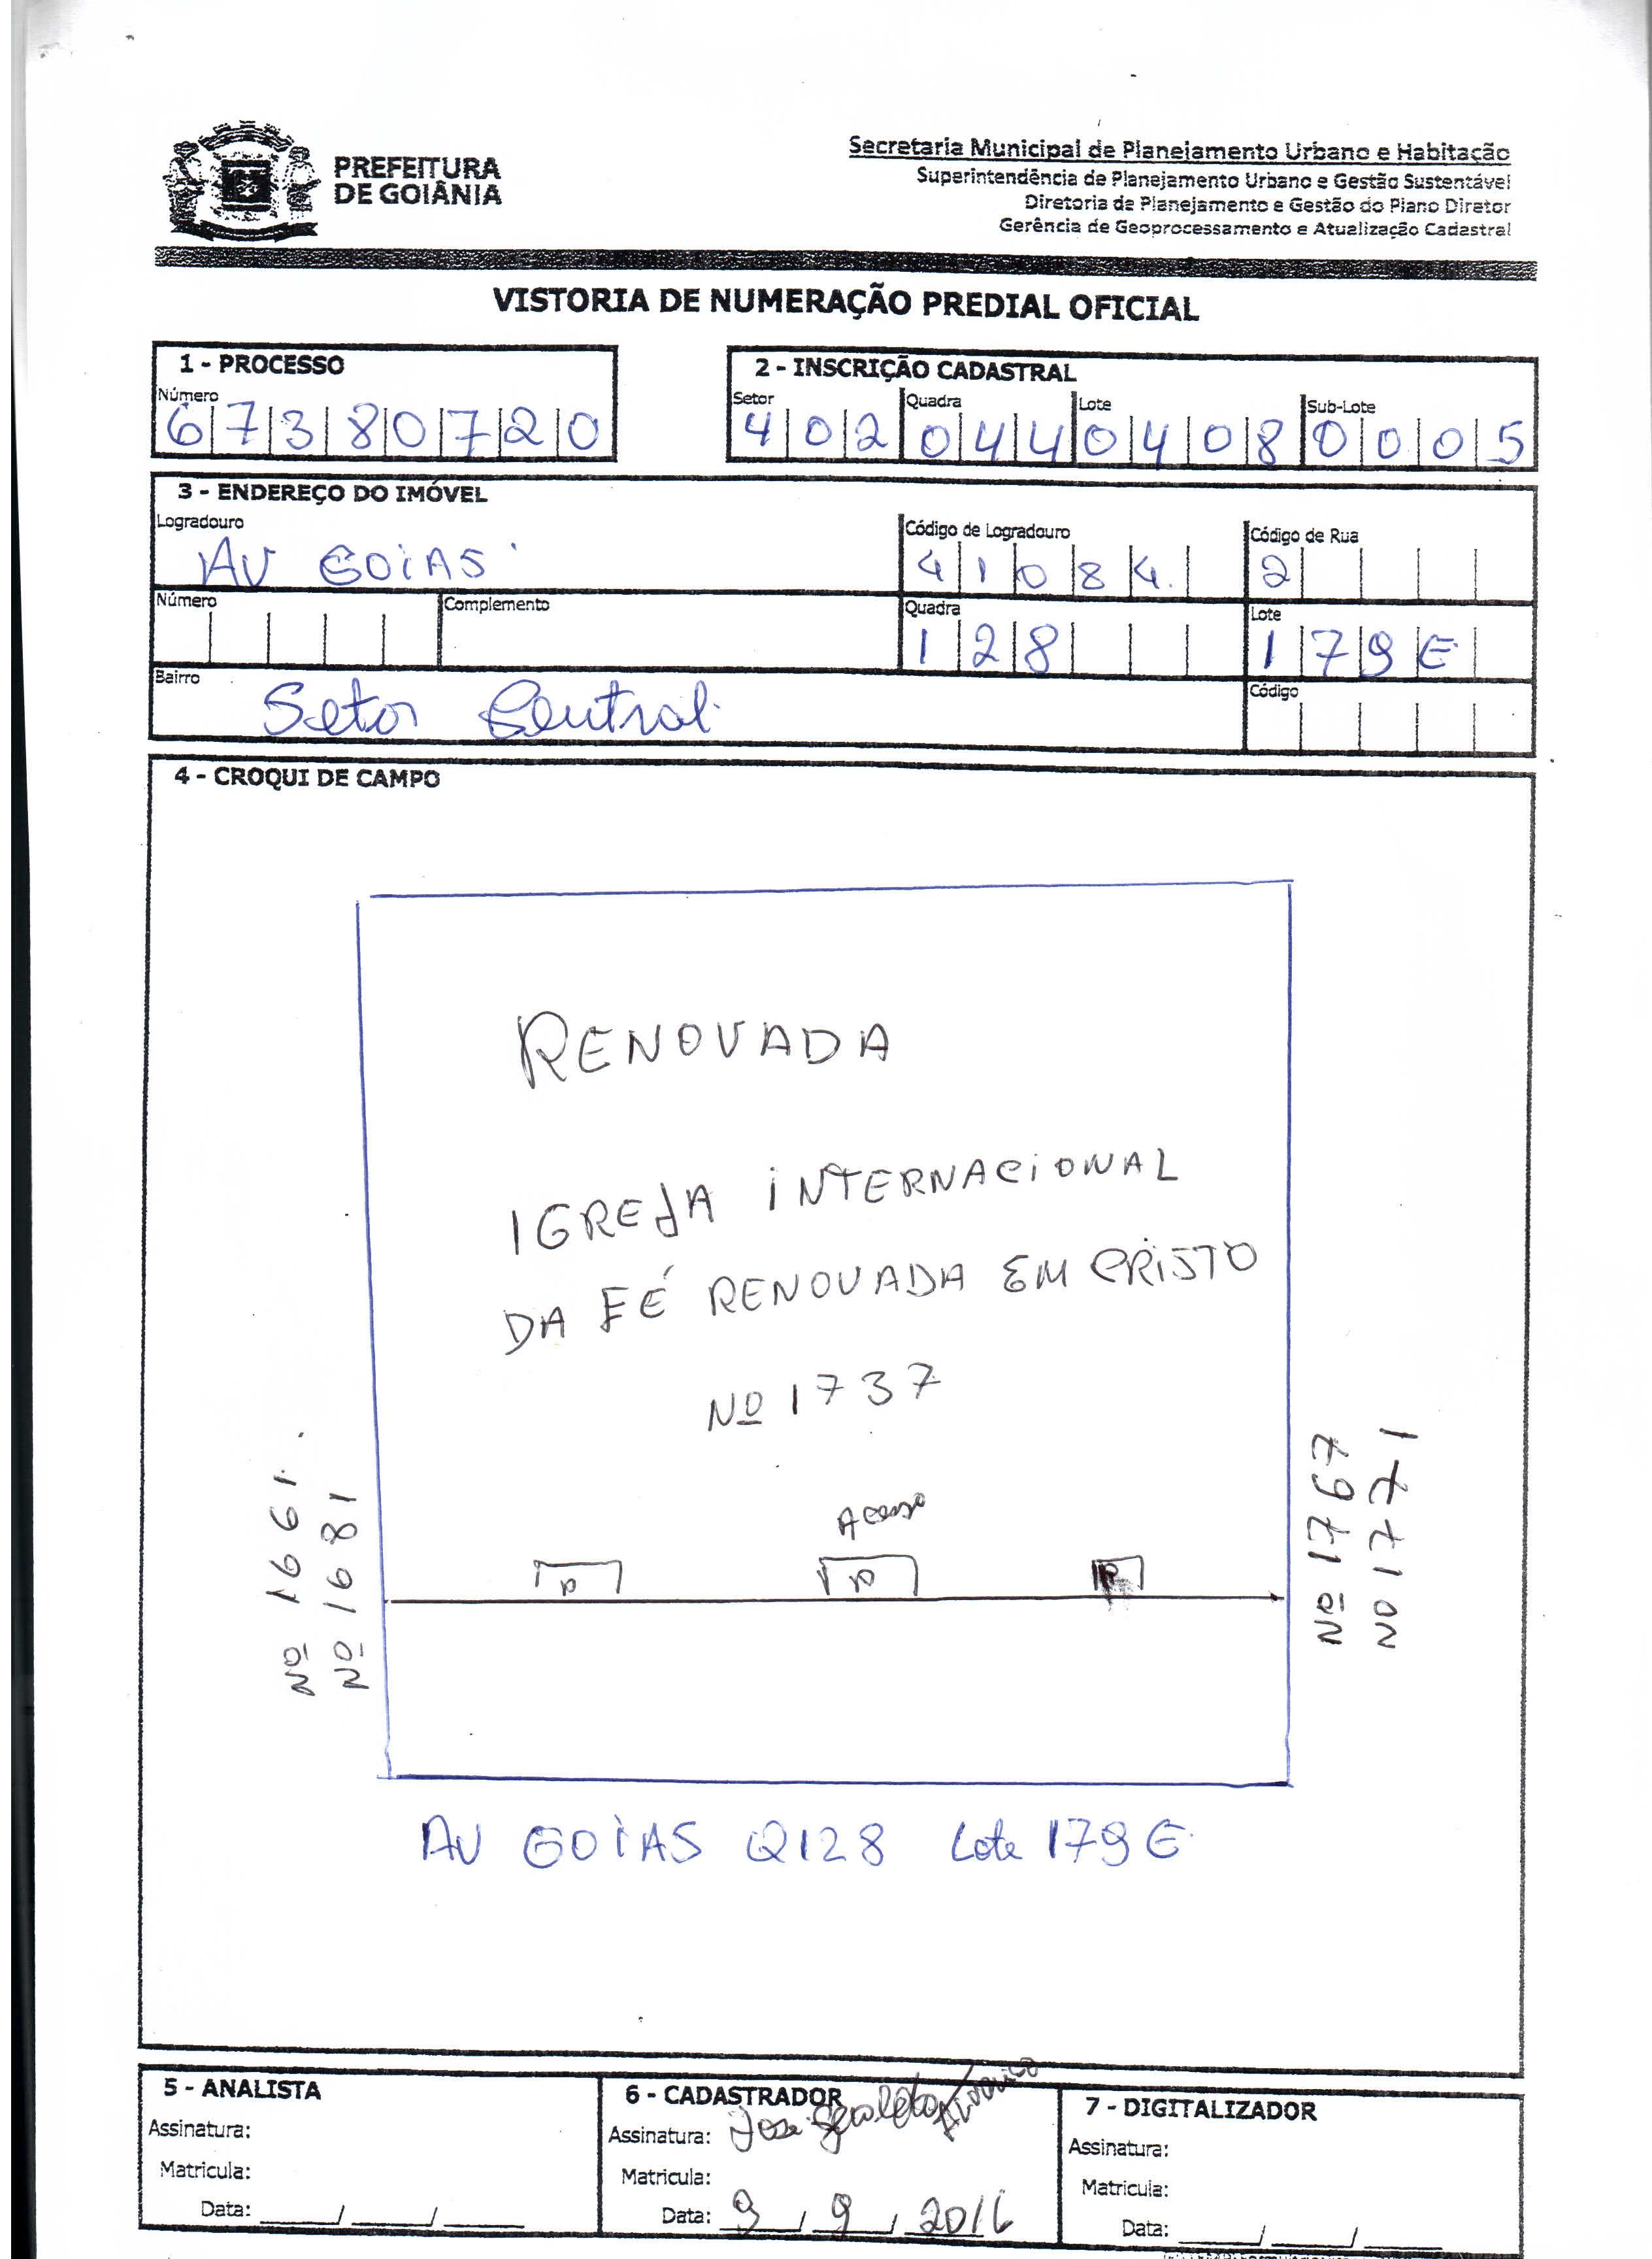 PREFEITURA
DE GOIÂNIA
Secretaria Municipal de Planejamento Urbano e Habitação
Superintendência de Planejamento Urbano e Gestão Sustentável
Diretoria de Planejamento e Gestão do Plano Diretor
Gerência de Geoprocessamento e Atualização Cadastral
VISTORIA DE NUMERAÇÃO PREDIAL OFICIAL
1 - PROCESSO
Número
67380720
2 - INSCRIÇÃO CADASTRAL
Setor Quadra Lote Sub-Lote
402 044 0408 0005
3 - ENDEREÇO DO IMÓVEL
Logradouro Código de Logradouro Código de Rua
AV GOIAS 41084 2
Número Complemento Quadra Lote
128 179E
Bairro Código
Setor Central
4 - CROQUI DE CAMPO
RENOVADA
IGREJA INTERNACIONAL
DA FÉ RENOVADA EM CRISTO
Nº 1737
Nº 1661
Nº 1681
Acesso
P P P
Nº 1767
Nº 1771
AV GOIAS Q128 Lote 179E
5 - ANALISTA
Assinatura:
Matricula:
Data: ____/____/____
6 - CADASTRADOR
Assinatura: Jose
Matricula:
Data: 9/9/2016
7 - DIGITALIZADOR
Assinatura:
Matricula:
Data: ____/____/____